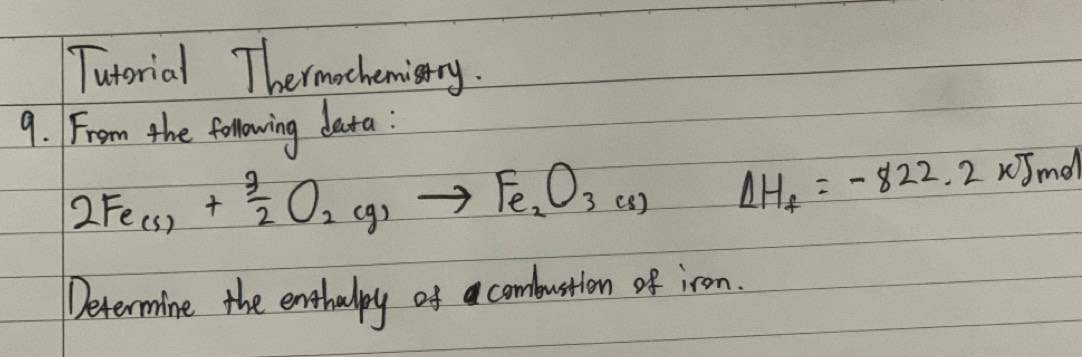 Tutorial Thermochemistry.
9. From the following data:
2Fe(s) + 3/2 O₂ (g) → Fe₂O₃ (s) ΔHf = -822.2 kJmol
Determine the enthalpy of combustion of iron.